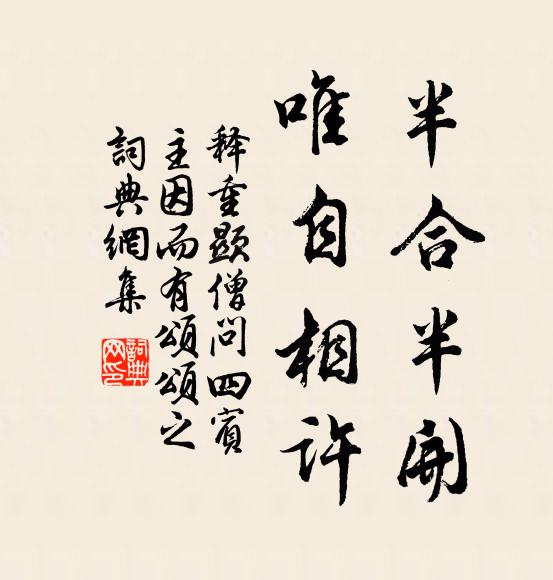 半合半開
唯自相許
释重顯僧問四賓
主因而有頌頌之
詞典網集
詞典網印